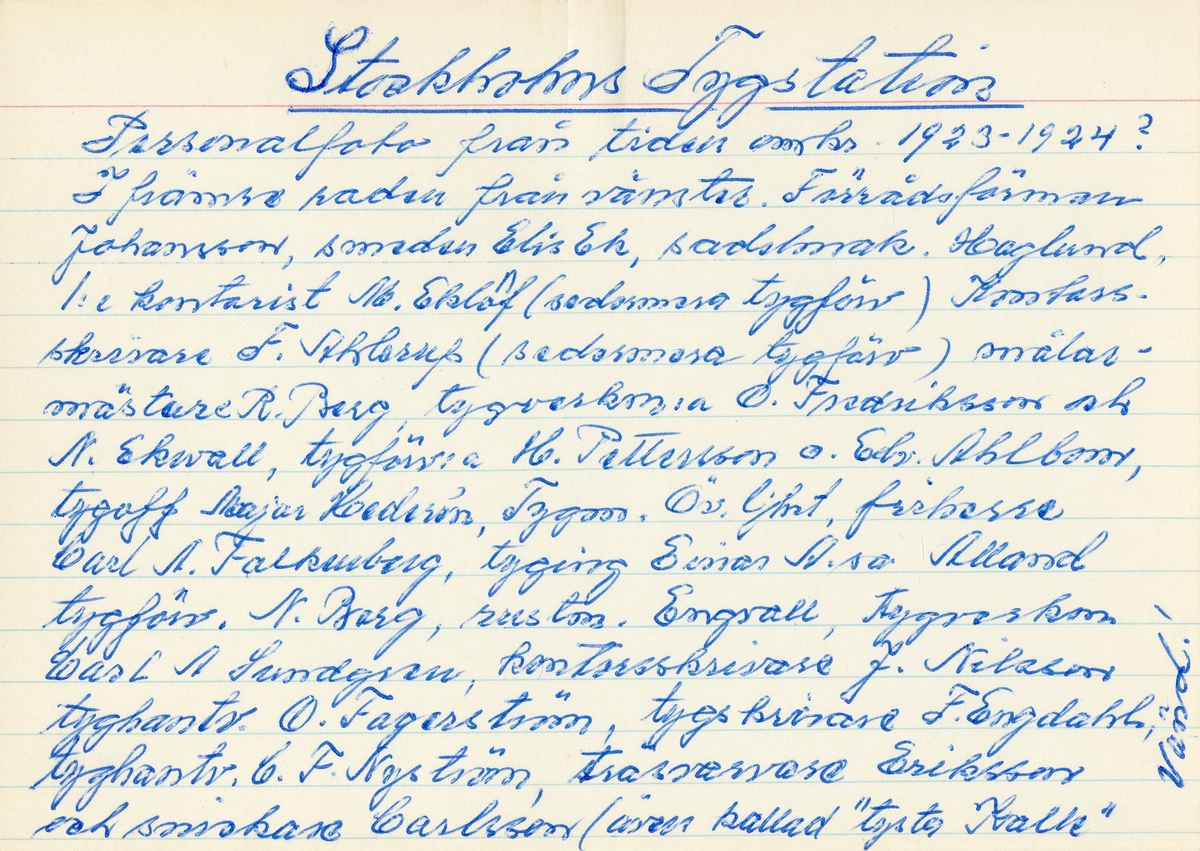 Stockholms Tygstation
Personalfoto från tiden omkr. 1923-1924?
I främre raden från vänster. Förrådsförman
Johansson, smeden Elis Ek, sadelmak. Haglund,
1:e kontorist M. Eklöf (sedermera tygförv) Kontors-
skrivare F. Ahlerup (sedermera tygförv) målar-
mästare R. Berg, tygverkm:a O. Fredriksson och
N. Ekwall, tygförv:a H. Pettersson o. Edv. Ahlbom,
tygoff Major Hederén, Tygm. Öv. ljht, friherre
Carl A. Falkenberg, tyging Einar A:sa Alland
tygförv. N. Berg, rustm. Engvall, tygverkm
Carl A Lundgren, kontorsskrivare J. Nilsson
tyghantv. O. Fagerström, tygskrivare F. Engdahl,
tyghantv. C. F. Nyström, träsvarvare Eriksson
och snickare Carlsson (även kallad "tysta Kalle"
Vänd!